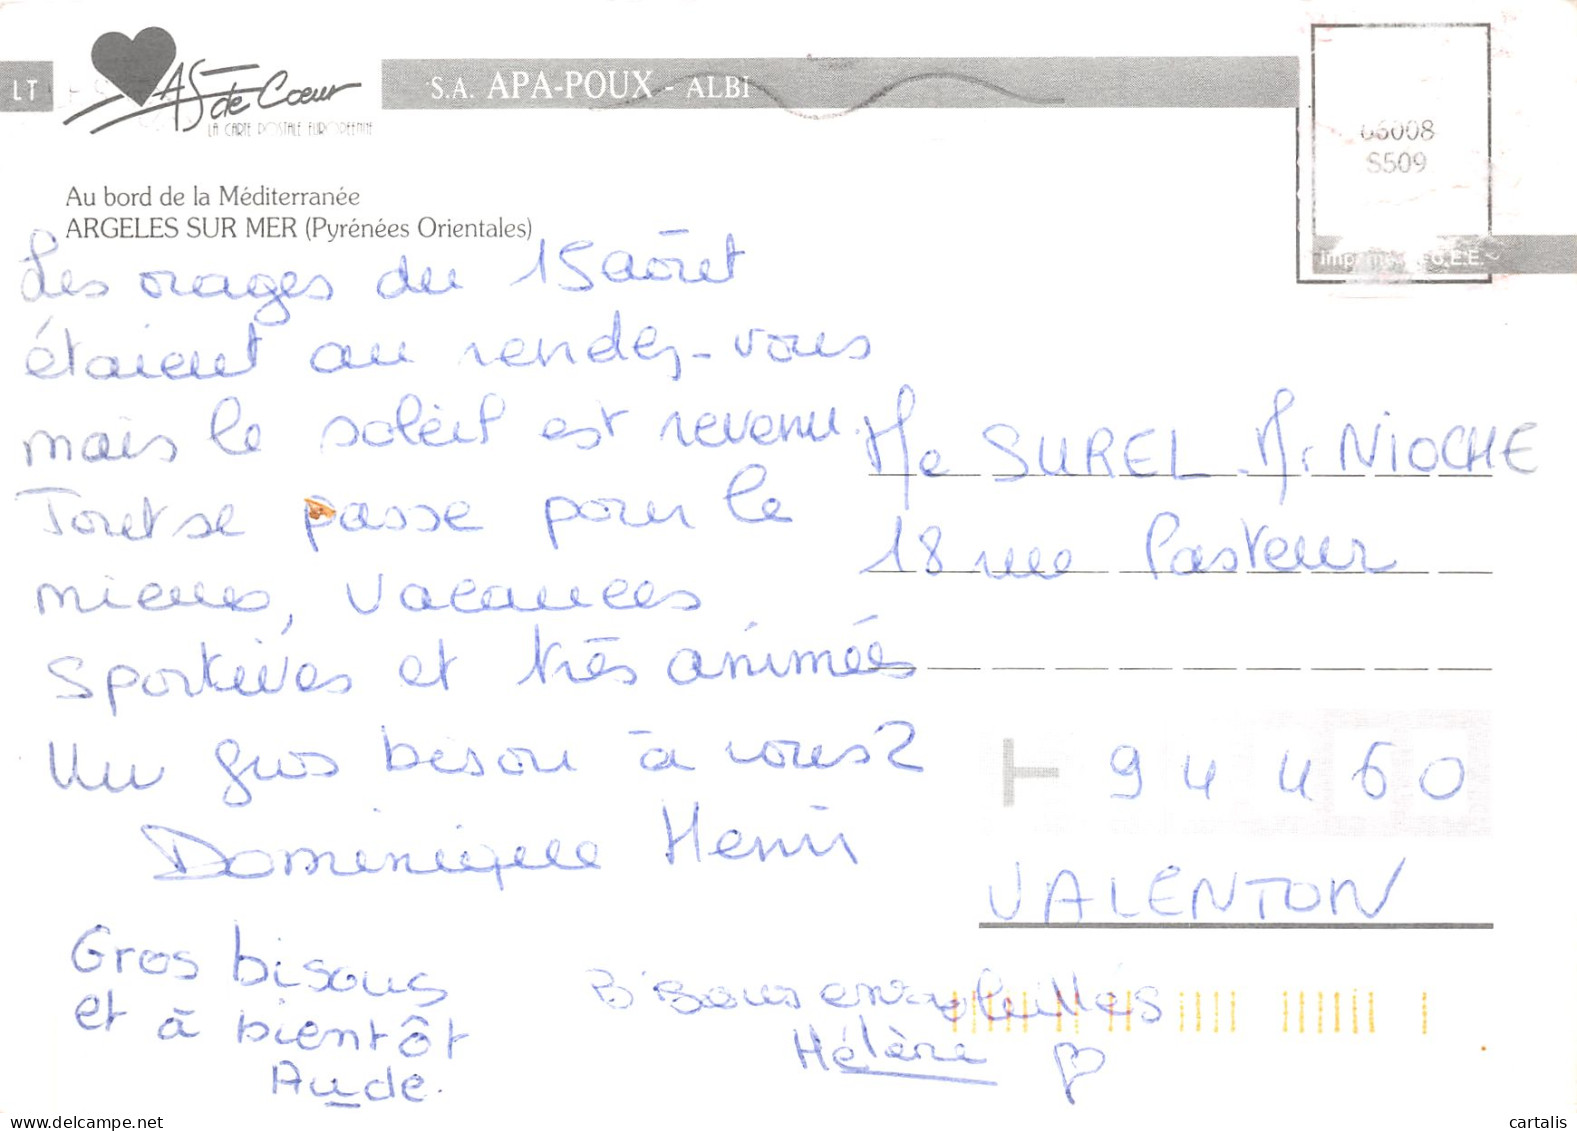 LT
AS de Coeur
LA CARTE POSTALE EUROPÉENNE
S.A. APA-POUX - ALBI
06008
S509
Au bord de la Méditerranée
ARGELES SUR MER (Pyrénées Orientales)
Les orages du 15 août
étaient au rendez-vous
mais le soleil est revenu.
Tout se passe pour le
mieux, vacances
sportives et très animées
Un gros bisou à vous 2
Dominique Henri
Me SUREL - Mr NIOCHE
18 rue Pasteur
94460
VALENTON
Gros bisous
et à bientôt
Aude.
Bisous ensoleillés
Hélène
delcampe.net
cartalis